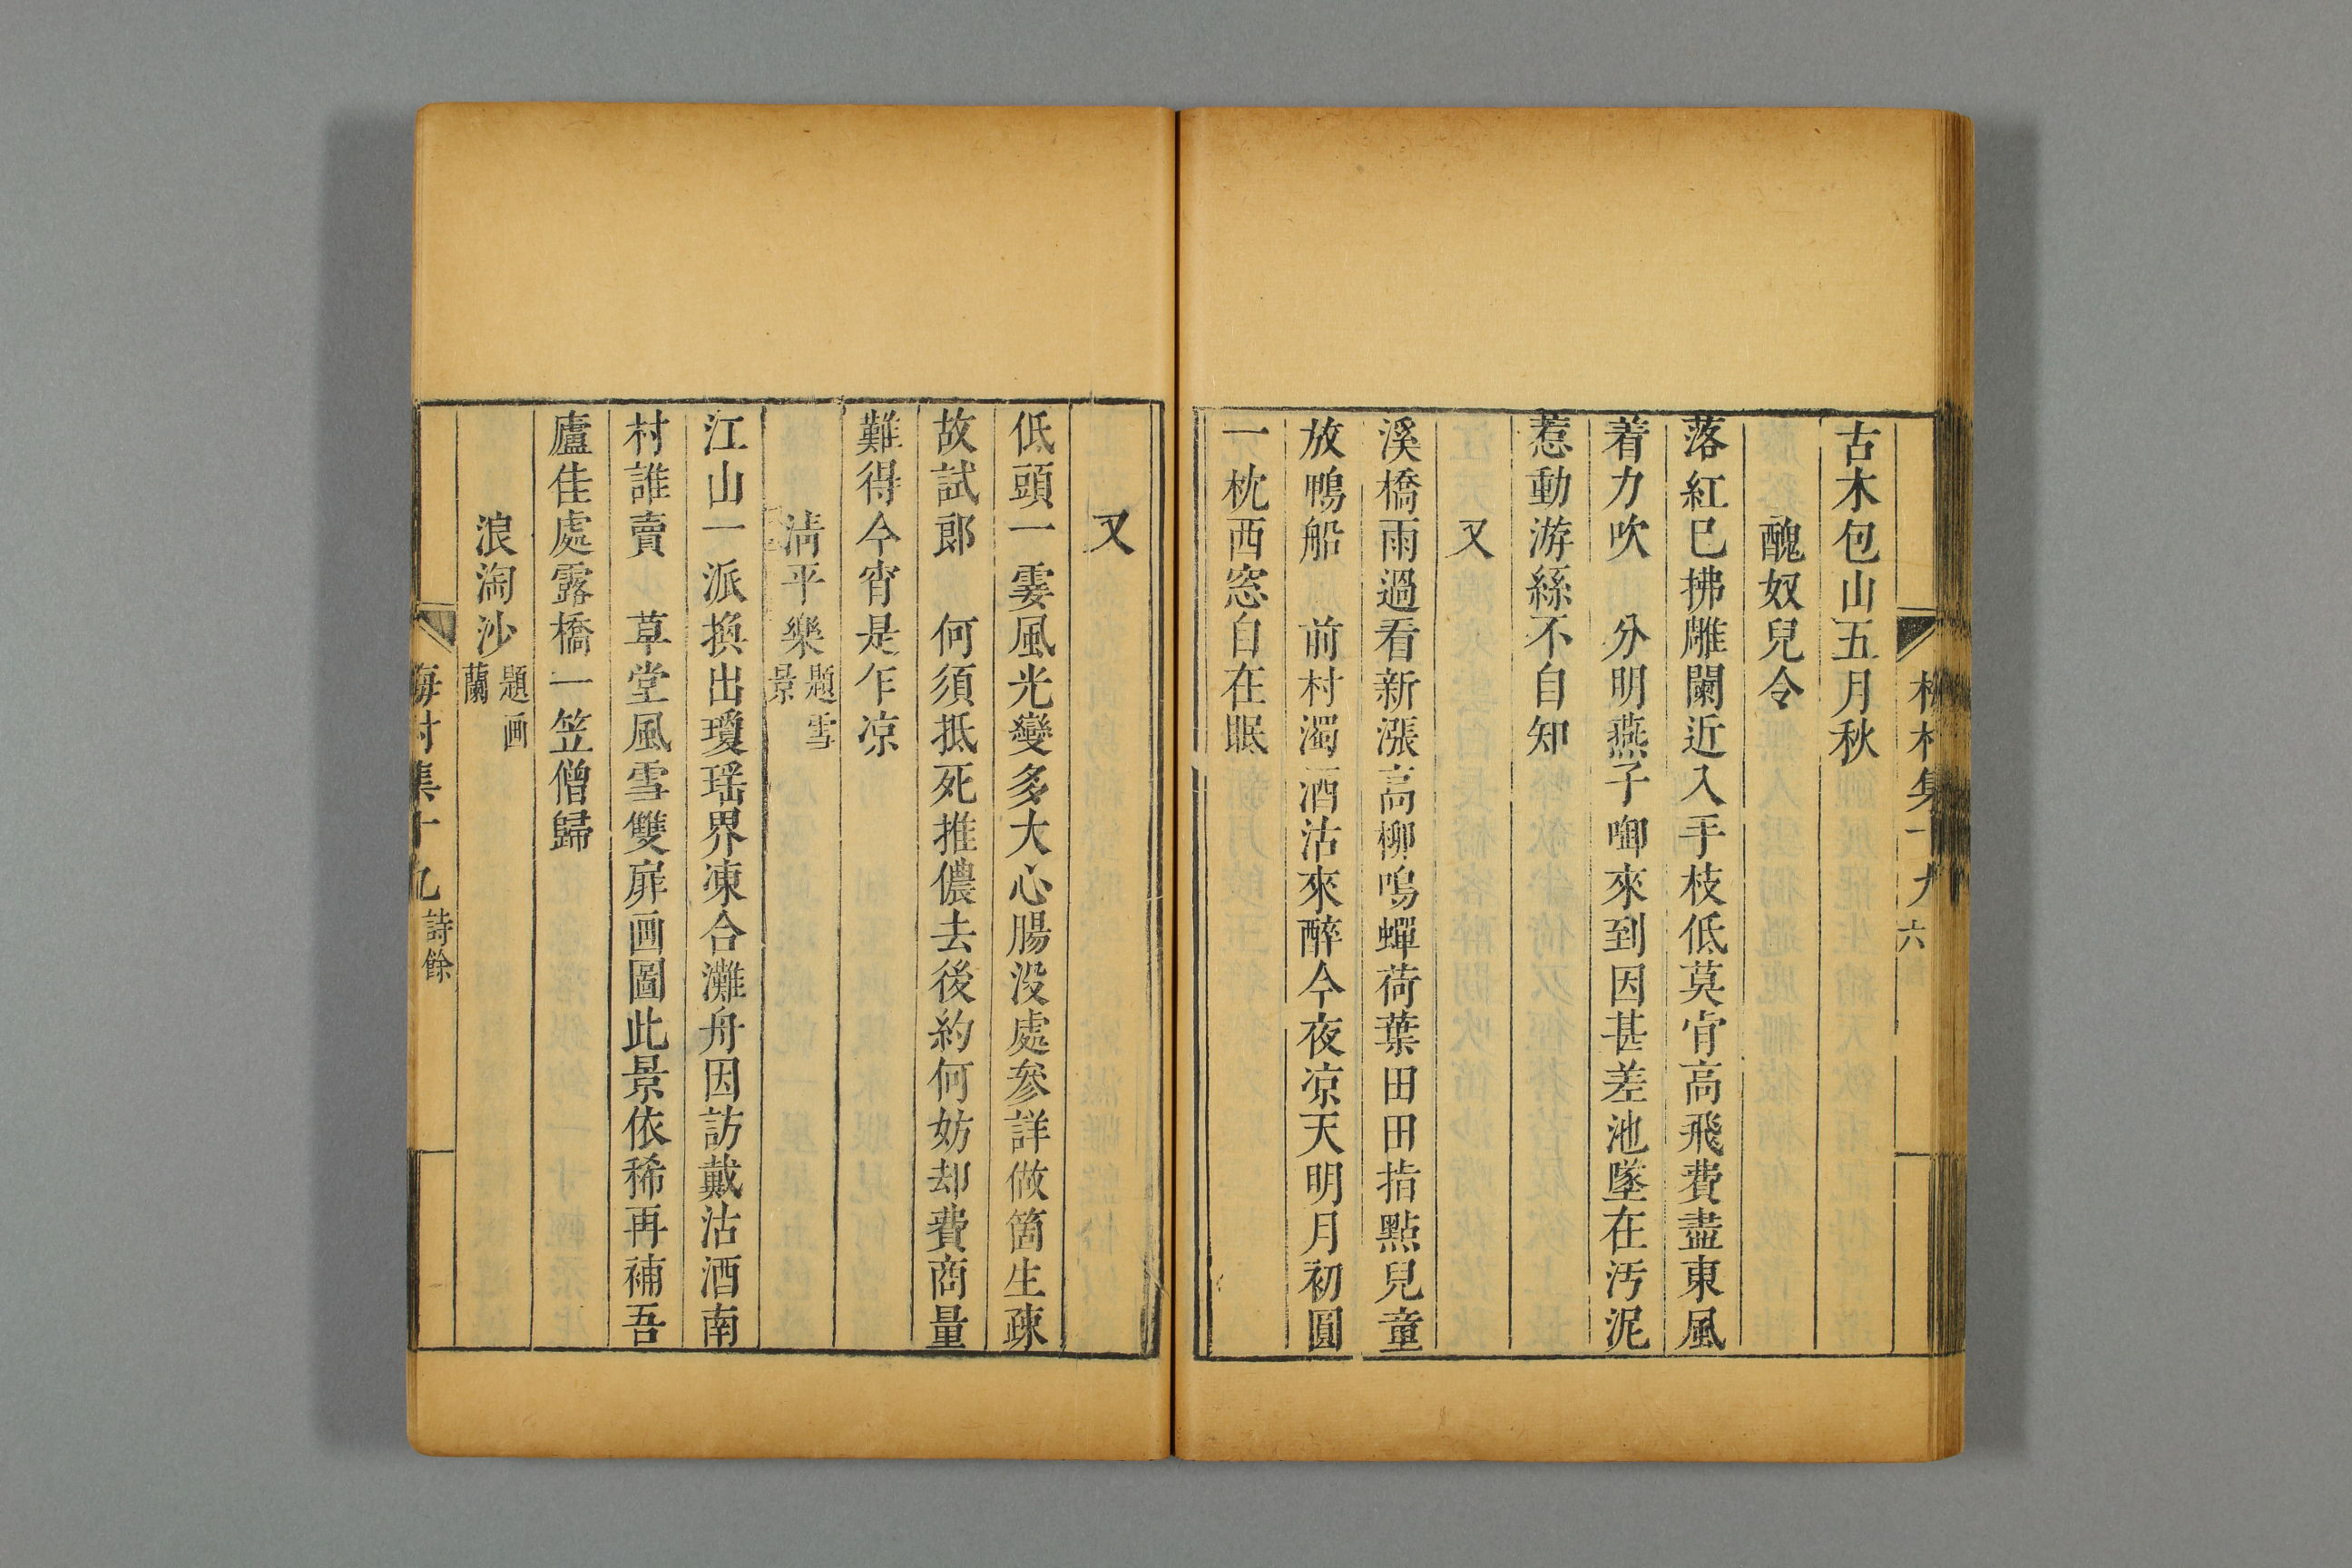 古木包山五月秋
醜奴兒令
落紅巳拂雕闌近入手枝低莫宵高飛費盡東風
着力吹　分明燕子啣來到因甚差池墜在汚泥
惹動游絲不自知
又
溪橋雨過看新漲高柳鳴蟬荷葉田田指點兒童
放鴨船　前村濁酒沽來醉今夜凉天明月初圓
一枕西窓自在眠
又
低頭一霎風光變多大心腸没處參詳做箇生疎
故試郎　何須抵死推儂去後約何妨却費商量
難得今宵是乍凉
淸平樂題雪景
江山一派換出瓊瑶界凍合灘舟因訪戴沽酒南
村誰賣　草堂風雪雙扉画圖此景依稀再補吾
廬佳處露橋一笠僧歸
浪淘沙題画蘭
梅村集十九 詩餘
梅村集十九 六